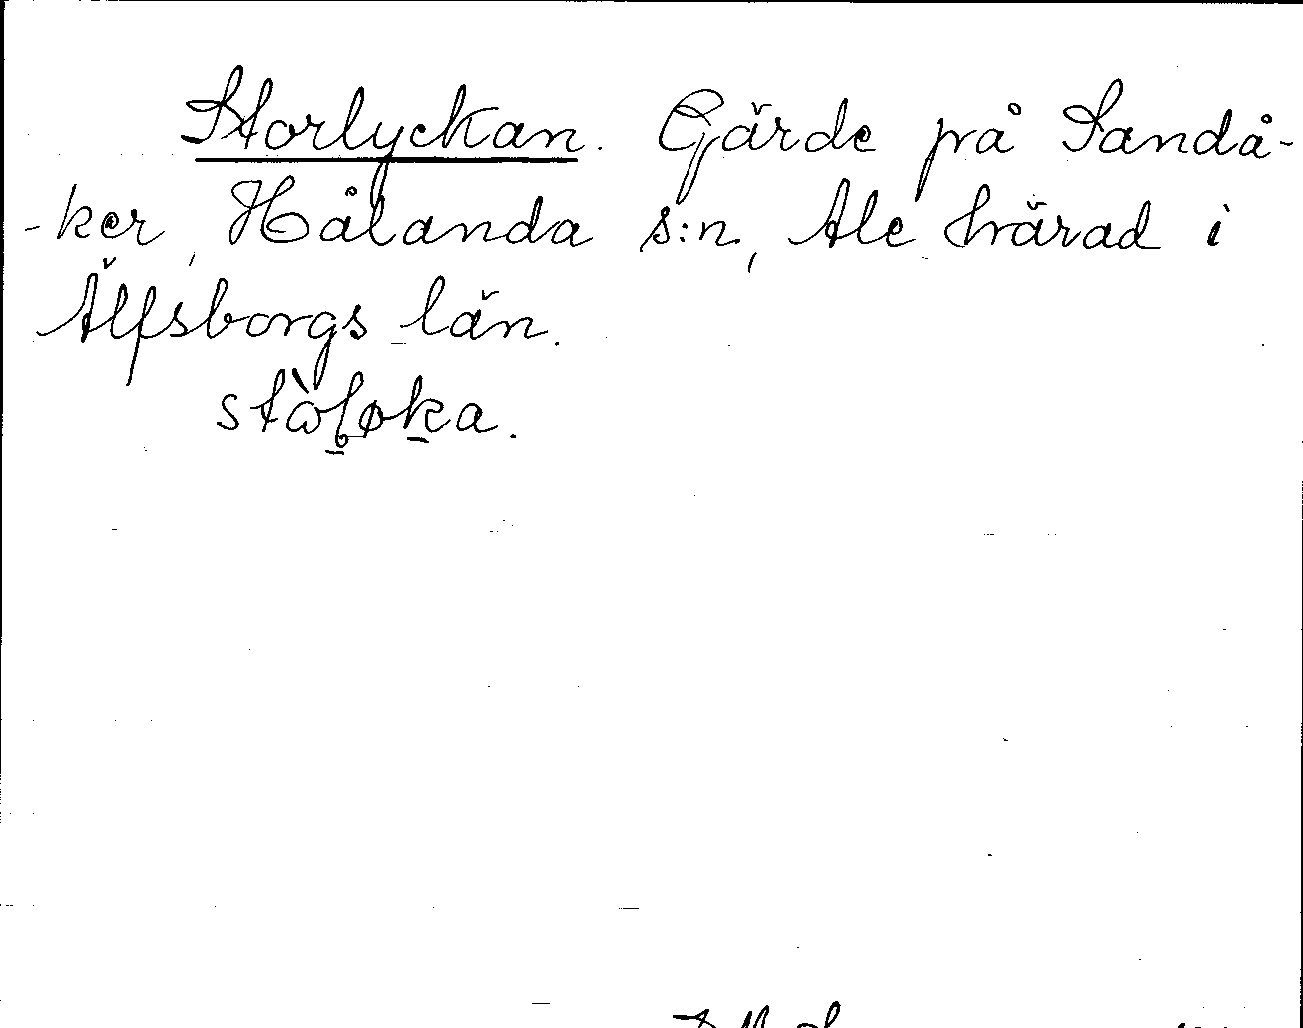 Storlyckan. Gärde på Sandå-
-ker, Hålanda s:n, Ale härad i
Älfsborgs län.